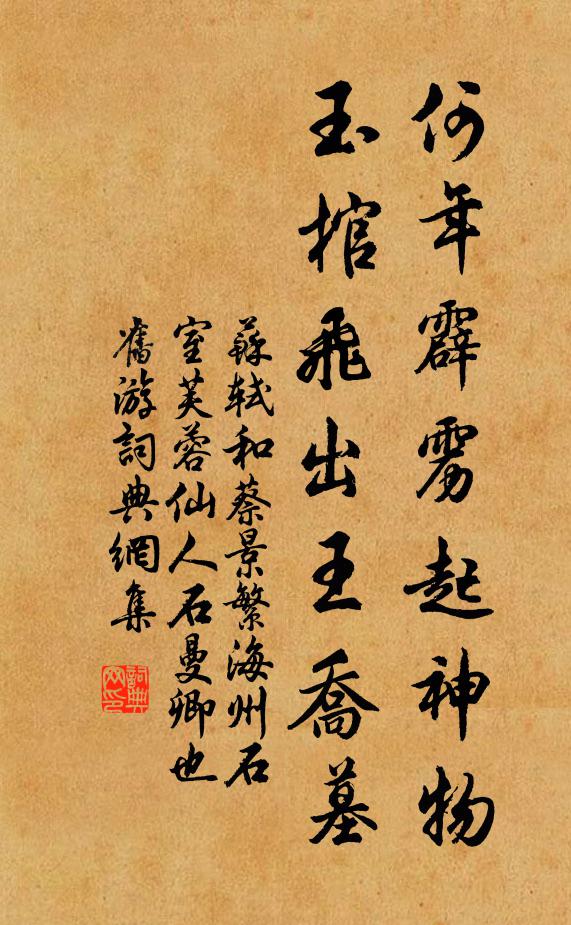 何年霹雳起神物
玉棺飛出王喬墓
蘇軾和蔡景繁海州石
室芙蓉仙人石曼卿也
舊游詞典網集
詞典
网印